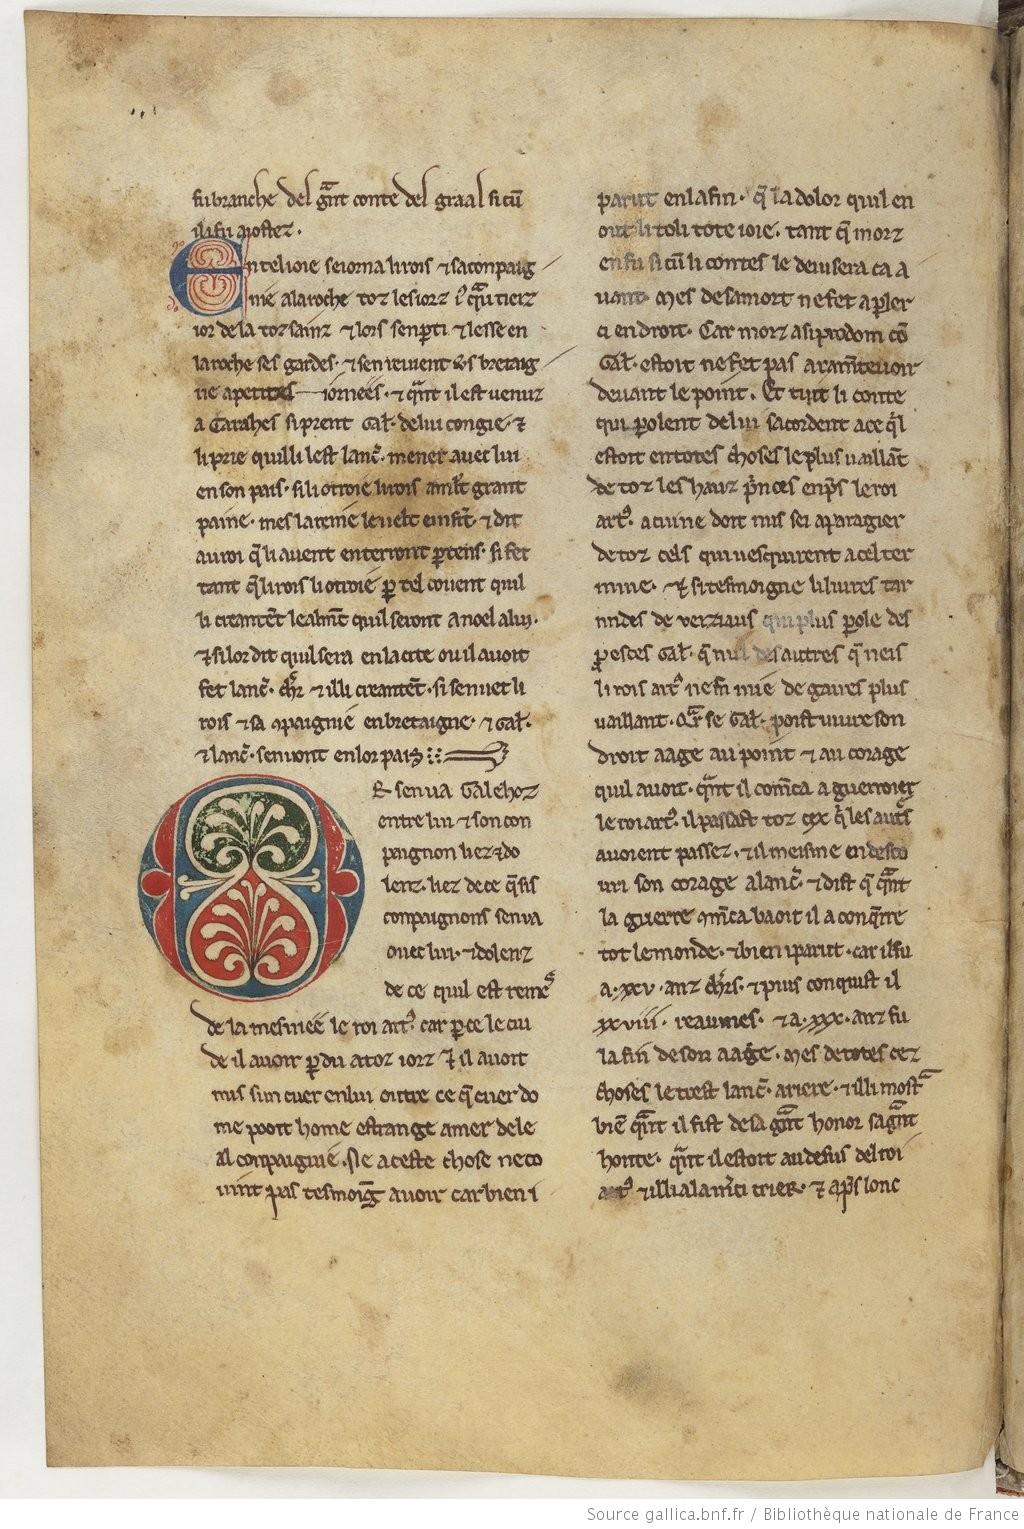 fu branche del gͣnt conte del graal si cū
il i fu aiostez.
En tel ioie seiorna li rois ⁊ sa conpaig
nie a la roche toz les iorz iͨ qͣu tierz
ior de la toz sainz ⁊ lors sen ꝑti ⁊ lesse en
la roche ses gardes. ⁊ sen reuient uͨs bretaig
ne a petites iornees. ⁊ qͣnt il est venuz
a Carahes si prent Gal. de lui congie. ⁊
li prie quil li lest lanc̄. mener auec lui
en son pais. si li otroie li rois a mlt grant
paine. mes la reine le uelt einsīt. ⁊ dit
au roi q̄ li auent enterront ꝑ tens. si fet
tant q̄ li rois li otroie ꝑ tel couent quil
li creantēt lealmt̄ quil seront a noel a lui.
⁊ si lor dit quil sera en la cite ou il auoit
fet lanc̄. chlr̄ ⁊ il li creantēt. si sen uet li
rois ⁊ sa ꝯpaignie en bretaigne. ⁊ Gal.
⁊ lanc̄. sen uont en lor pais
Or sen ua Galehoz
entre lui ⁊ son con
paignon liez ⁊ do
lenz. liez de ce q̄ sis
conpaignons sen va
ouec lui. ⁊ dolenz
de ce quil est remeͣs
de la mesniee le roi artꝰ. car ꝑ ce le cui
de il auoir ꝑdu a toz iorz ⁊ il auoit
mis sun cuer en lui outre ce q̄ cuer do
me pooit home estrange amer de le
al conpaignie. Ne a ceste chose ne co
uint pas tesmoiḡ auoir car bien i
parut en la fin. q̄ la dolor quil en
out li toli tote ioie. tant q̄ morz
en fu si cū li contes le deuisera ca a
uant. Mes de sa mort ne fet a ꝑler
ci en droit. Car morz a si prodom cō
Gal. estoit ne fet pas a ramēteuoir
deuant le point. Et tuit li conte
qui ꝑolent de lui sacordent a ce q̄l
estoit en totes choses le plus uaillāt
de toz les hauz pͥnces enpͣs le roi
artꝰ. a cui ne doit nus sei aparagier
de toz cels qui uesquirent a cel ter
mine. ⁊ si tesmoigne li liures tar
mides de verziaus qui plus ꝑole des
ꝓesces Gal. q̄ nul des autres q̄ neis
li rois artꝰ ne fu mie de gaires plus
uaillant. Qͣr se Gal. poist viure son
droit aage au point ⁊ au corage
quil auoit. qͣnt il comēca a guerroier
le roi artꝰ. il passast toz cex q̄ les autͣs
auoient passez. ⁊ il meisme en desco
uri son corage a lanc̄. ⁊ dist q̄ qͣnt
la guerre ꝯmēca baoit il a conq̄rre
tot le monde. ⁊ bien i parut. car il fu
a .xxv. anz chlrs. ⁊ puis conquist il
xxviii. reaumes. ⁊ a .xxx. anz fu
la fin de son aage. Mes de totes cez
choses le trest lanc̄. ariere. ⁊ il li mostͣ
biē qͣnt il fist de sa gͣnt honor sa gͣnt
honte. qͣnt il estoit au desus del roi
artꝰ ⁊ il li ala mͨci crier. ⁊ apͣs lonc